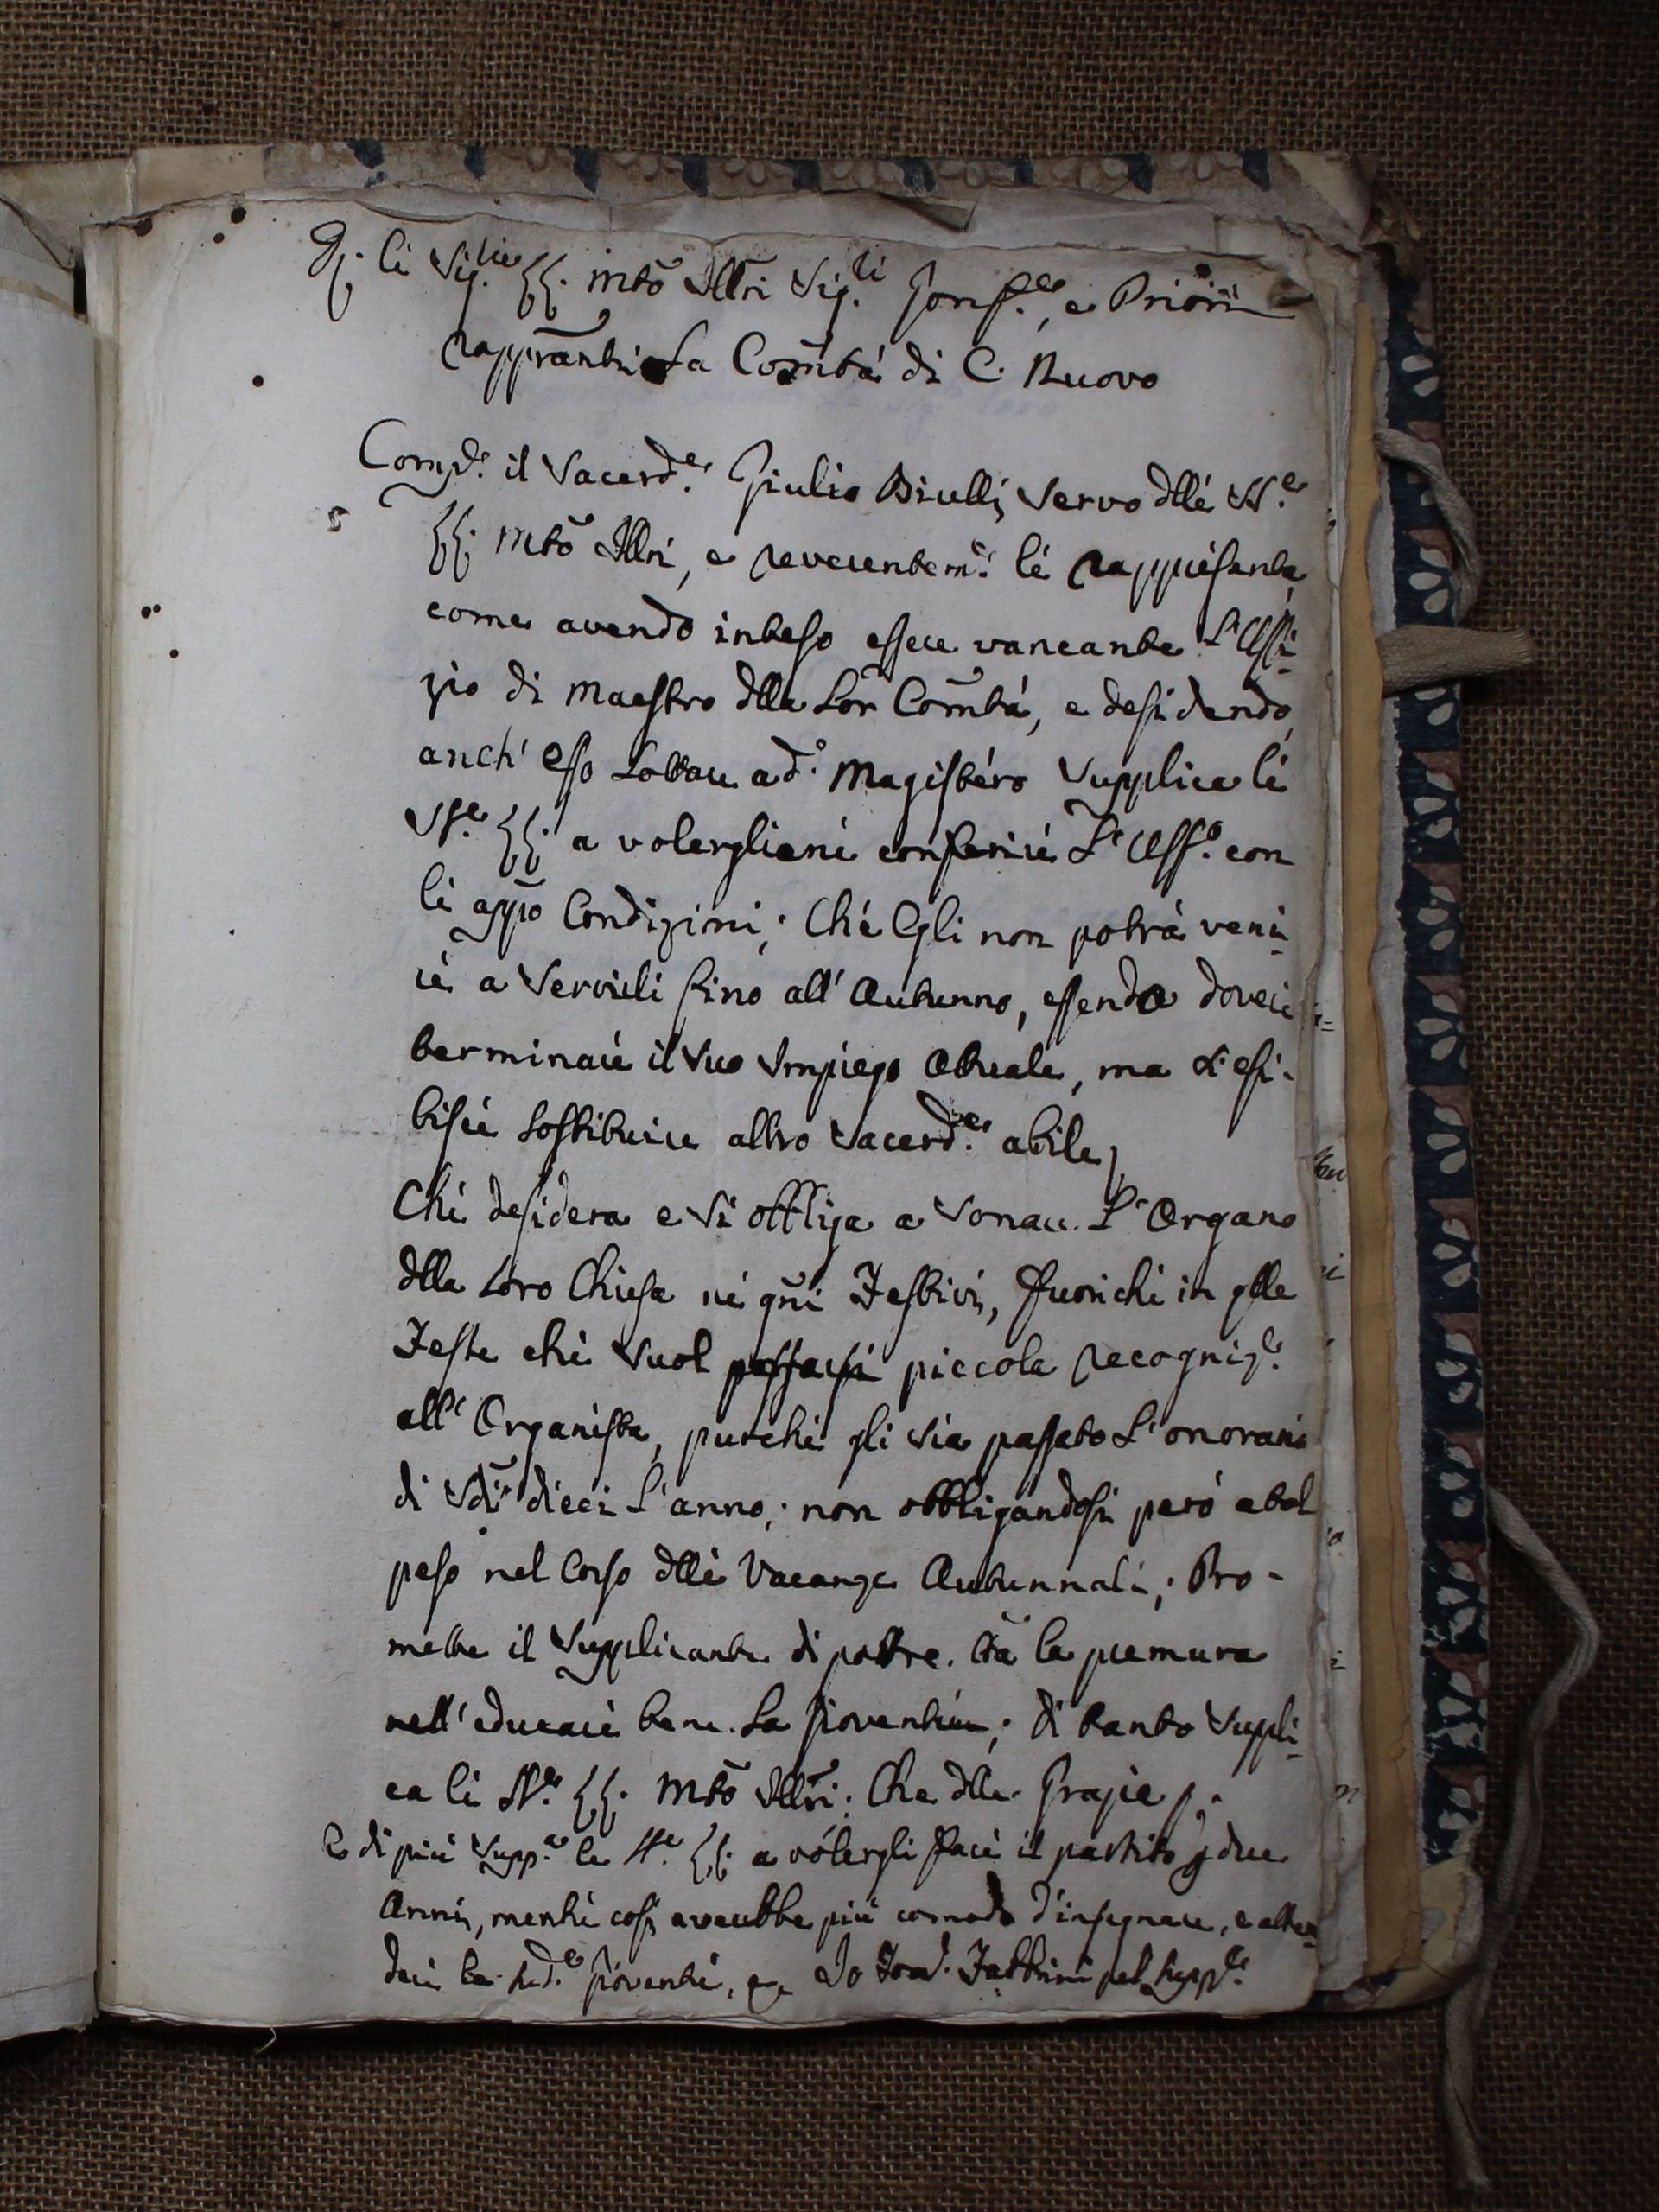 li Sig.rie LL. Mto Illri Sig.ri Gonf.re, e Priori
rappranti la Comtà di C. Nuovo
Comp.e il Sacerd.e Giulio Biulli Servo dlle SS.e
LL. Mto Illri, e reverentem.e le rappresenta
come avendo inteso essere vancante l'Uffi-
zio di Maestro dlla Lor Comtà, e desidendo
anch' esso Lottare a d.o Magistero Supplica le
SS.e LL. a volergliene conferire l'Uff.o con
le appo Condizioni; Che Egli non potrà veni-
re a Servirli fino all' Autunno, essendo dovere
terminare il Suo Impiego Atuale, ma s'esi-
bisce sostituire altro Sacerd.e abile;
Che desidera e Si obbliga a Sonare l'Organo
dlla Loro Chiesa ne gni Festivi, fuori che in qlle
Feste che Suol passarsi piccola recogniz.e
all' Organista, purche gli Sia passato l'onorario
di Sdi dieci l'anno; non obbligandosi però a tal
peso nel Corso dlle Vacanze Autunnali; Pro-
mette il Supplicante di porre tta la premura
nell' educare bene la Gioventù; di tanto Suppli-
ca le SS.e LL. Mto Illri. Che dlla Grazia p.
E di più Supp.ca le SS.e LL. a volergli fare il partito p due
Anni, mentre così averebbe più comodo d'insegnare, e atten-
dere la sud.a Gioventù, e Io Fabbrini pel Supp.e